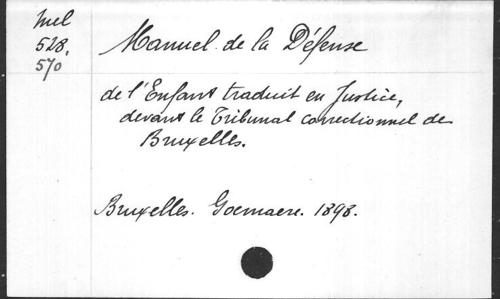 Mel
528.
570
Manuel de la Défense
de l'Enfant traduit en Justice,
devant le Tribunal correctionnel de
Bruxelles.
Bruxelles. Goemaere. 1898.